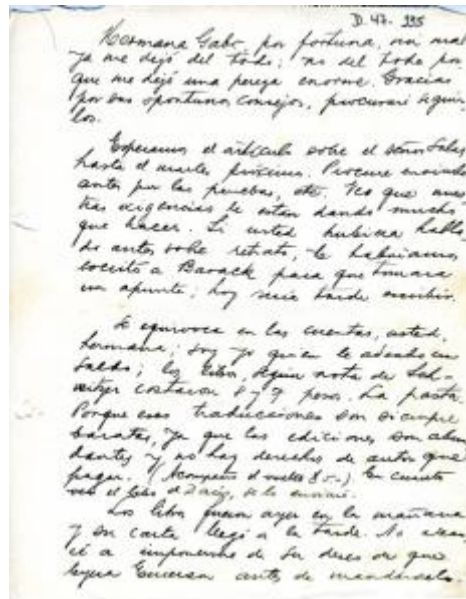 D. 47- 995
Hermana Gabr. por fortuna, mi mal
ya me dejó del todo; no del todo por
que me dejó una pereza enorme. Gracias
por sus oportunos consejos, procuraré seguir
los.
Esperamos el artículo sobre el señor Salas
hasta el martes próximo. Procure enviarlo
antes por las pruebas, etc. Veo que nues
tras exigencias le están dando mucho
que hacer. Si usted hubiera habla
do antes sobre retrato, le habríamos
escrito a Barack para que tomara
un apunte; hoy sería tarde escribir.
Se equivoca en las cuentas, usted,
hermana; soy yo quien le adeudo un
saldo; los libros, según nota de Sch-
weitzer costaron 8 y 9 pesos. La pasta.
Porque esas traducciones son siempre
baratas, ya que las ediciones son abun
dantes y no hay derechos de autor que
pagar. (Acompaño el vuelto 85.-) En cuanto
vea el libro de Zweig, se lo enviaré.
Los libros fueron ayer en la mañana
y su carta llegó a la tarde. No alcan
cé a imponerme de su deseo de que
leyera Emerson antes de mandárselo.